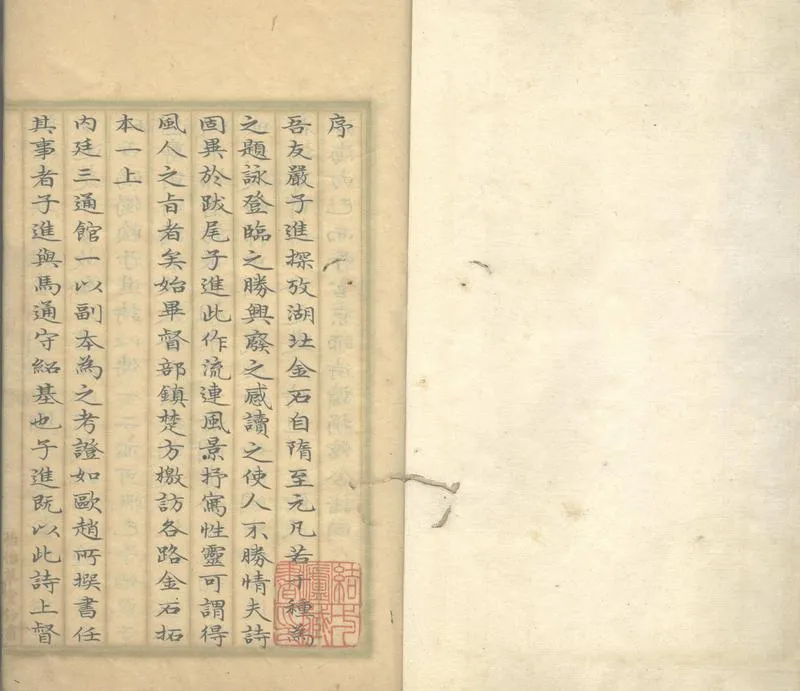 序
吾友嚴子進探攷湖北金石自隋至元凡若干種為
之題詠登臨之勝興廢之感讀之使人不勝情夫詩
固異於跋尾子進此作流連風景抒寫性靈可謂得
風人之旨者矣始畢督部鎮楚方檄訪各路金石拓
本一上
內廷三通館一以副本為之考證如歐趙所撰書任
其事者子進與馬通守紹基也子進既以此詩上督